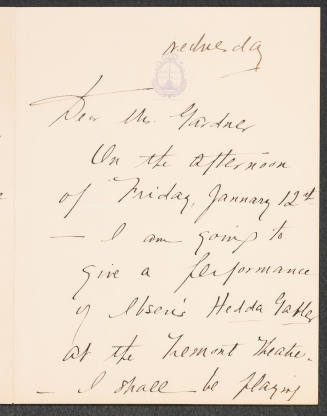 Wednesday
Dear Mrs Gardner
On the afternoon
of Friday, January 12th
— I am going to
give a performance
of Ibsen's Hedda Gabler
at the Tremont Theatre.
— I shall be playing